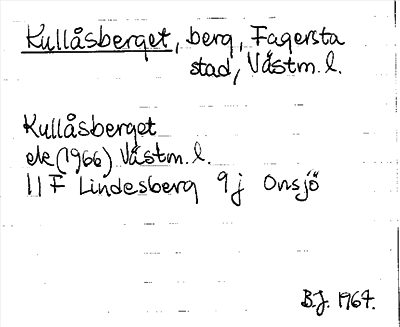 Kullåsberget, berg, Fagersta
stad, Västm. l.
Kullåsberget
ek (1966) Västm. l.
11 F Lindesberg 9 j Onsjö
B.J. 1967.